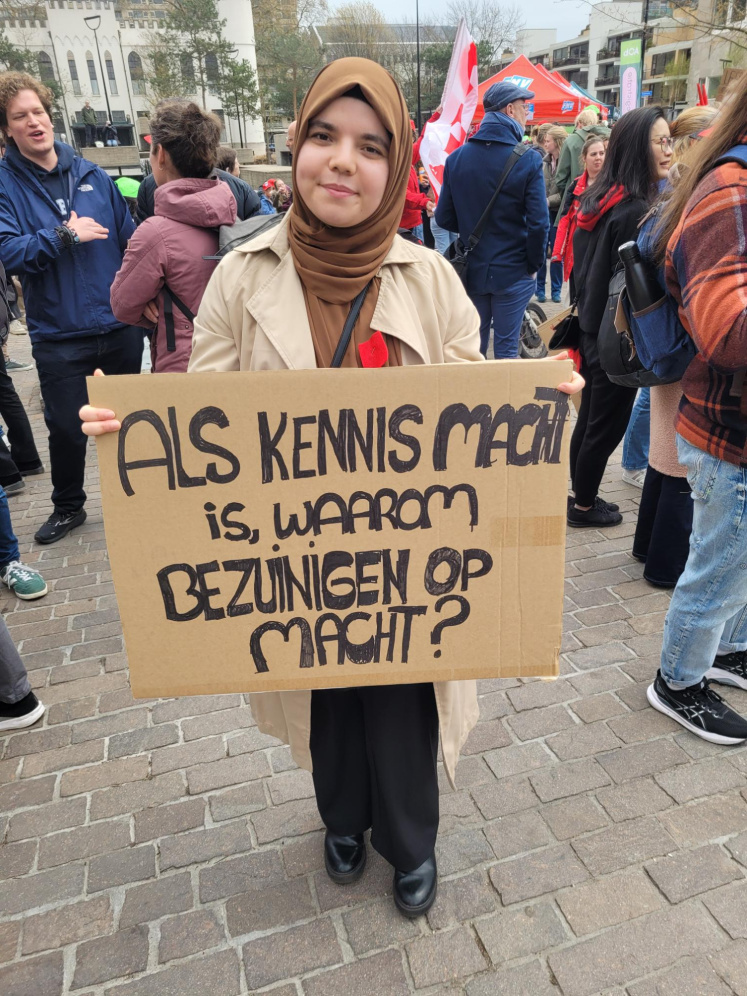 ALS KENNIS MACHT
is, WAAROM
BEZUINIGEN OP
MACHT?